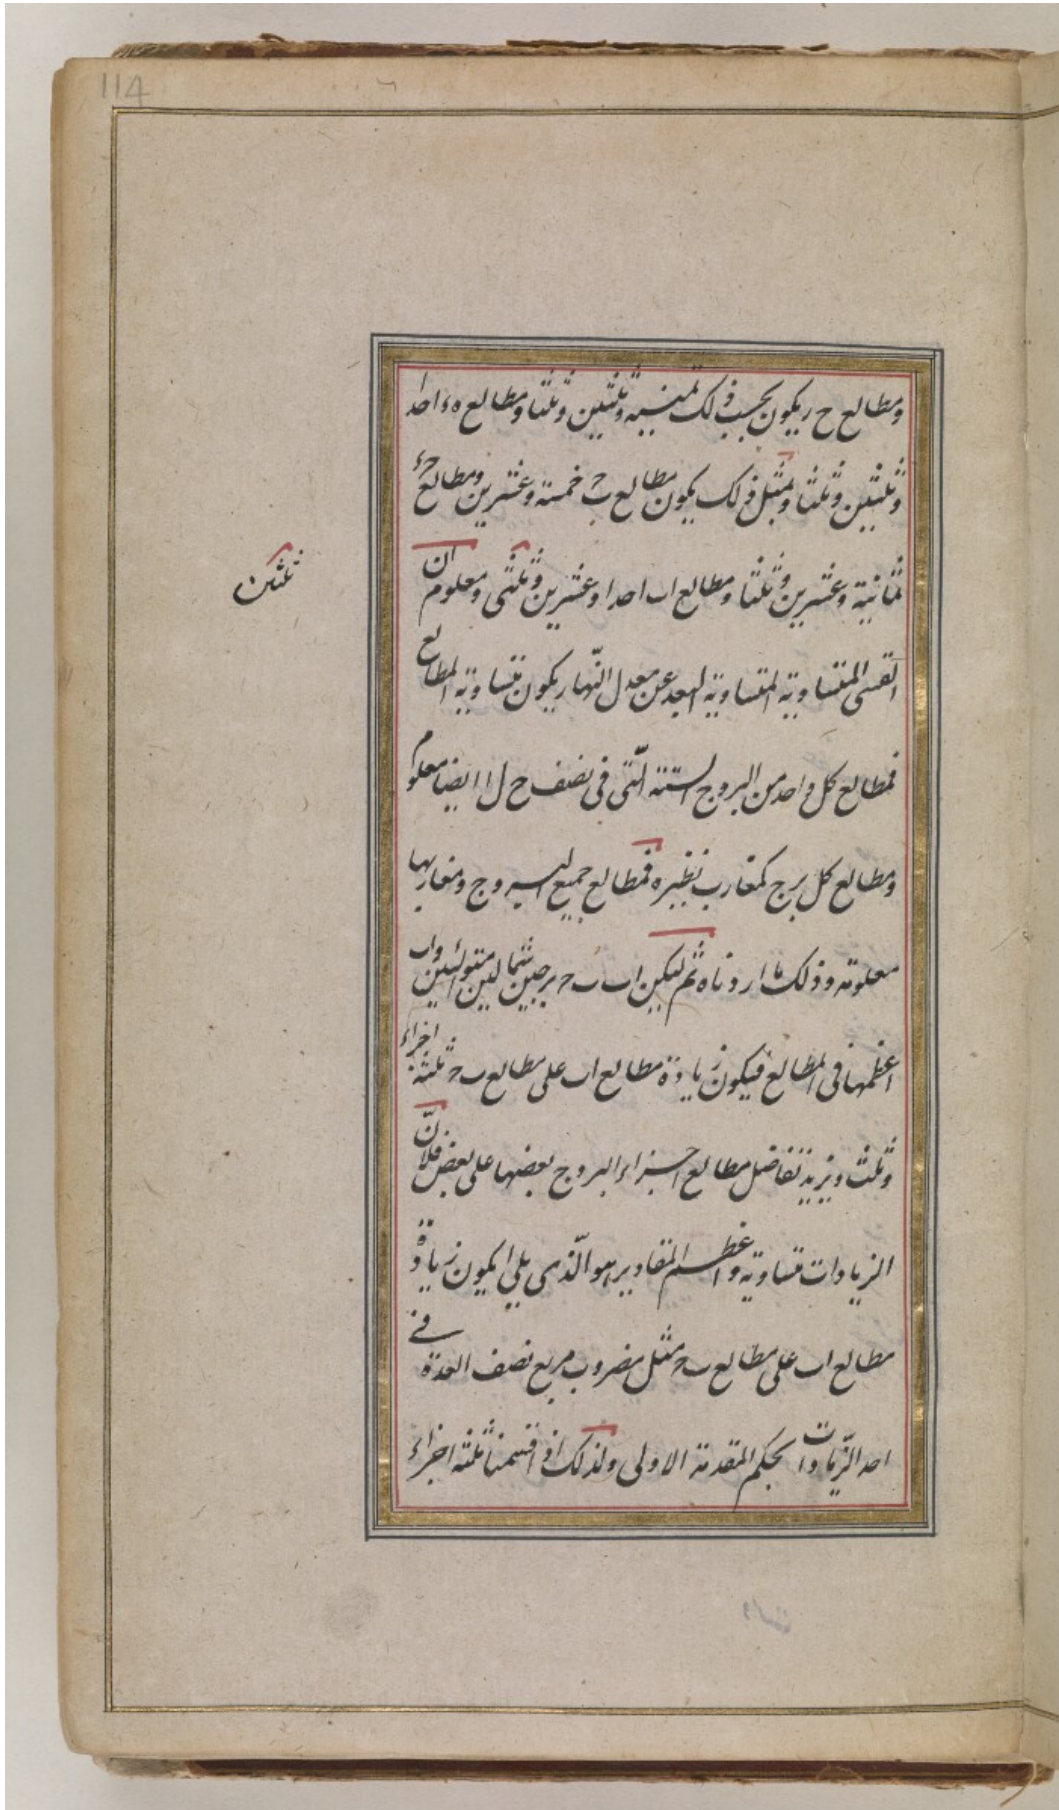 114
ومطالع ح ر يكون بحسب ذلك ثمنيه وثلثين وثلثا ومطالع ه ء احدا
وثلثين وثلثا وبمثل ذلك يكون مطالع ب ح خمسة وعشرين ومطالع ح ء
ثمانية وعشرين وثلثا ومطالع اب احدا وعشرين وثلثى ومعلوم ان
القسى المتساوية المتساوية البعد عن معدل النّهار يكون متساوية المطالع
فمطالع كل واحد من البروج الستة الّتى فى نصف ح ل ا ايضا معلوم
ومطالع كل برج كمغارب نظيره فمطالع جميع البروج ومغاربها
معلومة وذلك ما اردناه ثم ليكن اب ب ح برجين شماليين متواليين واب
اعظمها فى المطالع فيكون زيادة مطالع اب على مطالع ب ح ثلثة اجزاء
وثلث ونريد تفاضل مطالع اجزاء البروج بعضها على بعض فلانّ
الزيادات متساوية واعظم المقادير هو الّذى يلى ا يكون زيادة
مطالع اب على مطالع ب ح مثل مضروب مربع نصف العدة فى
احد الزّيادات بحكم المقدمة الاولى ولذلك اذا قسمنا ثلثة اجزاء
ثلثين